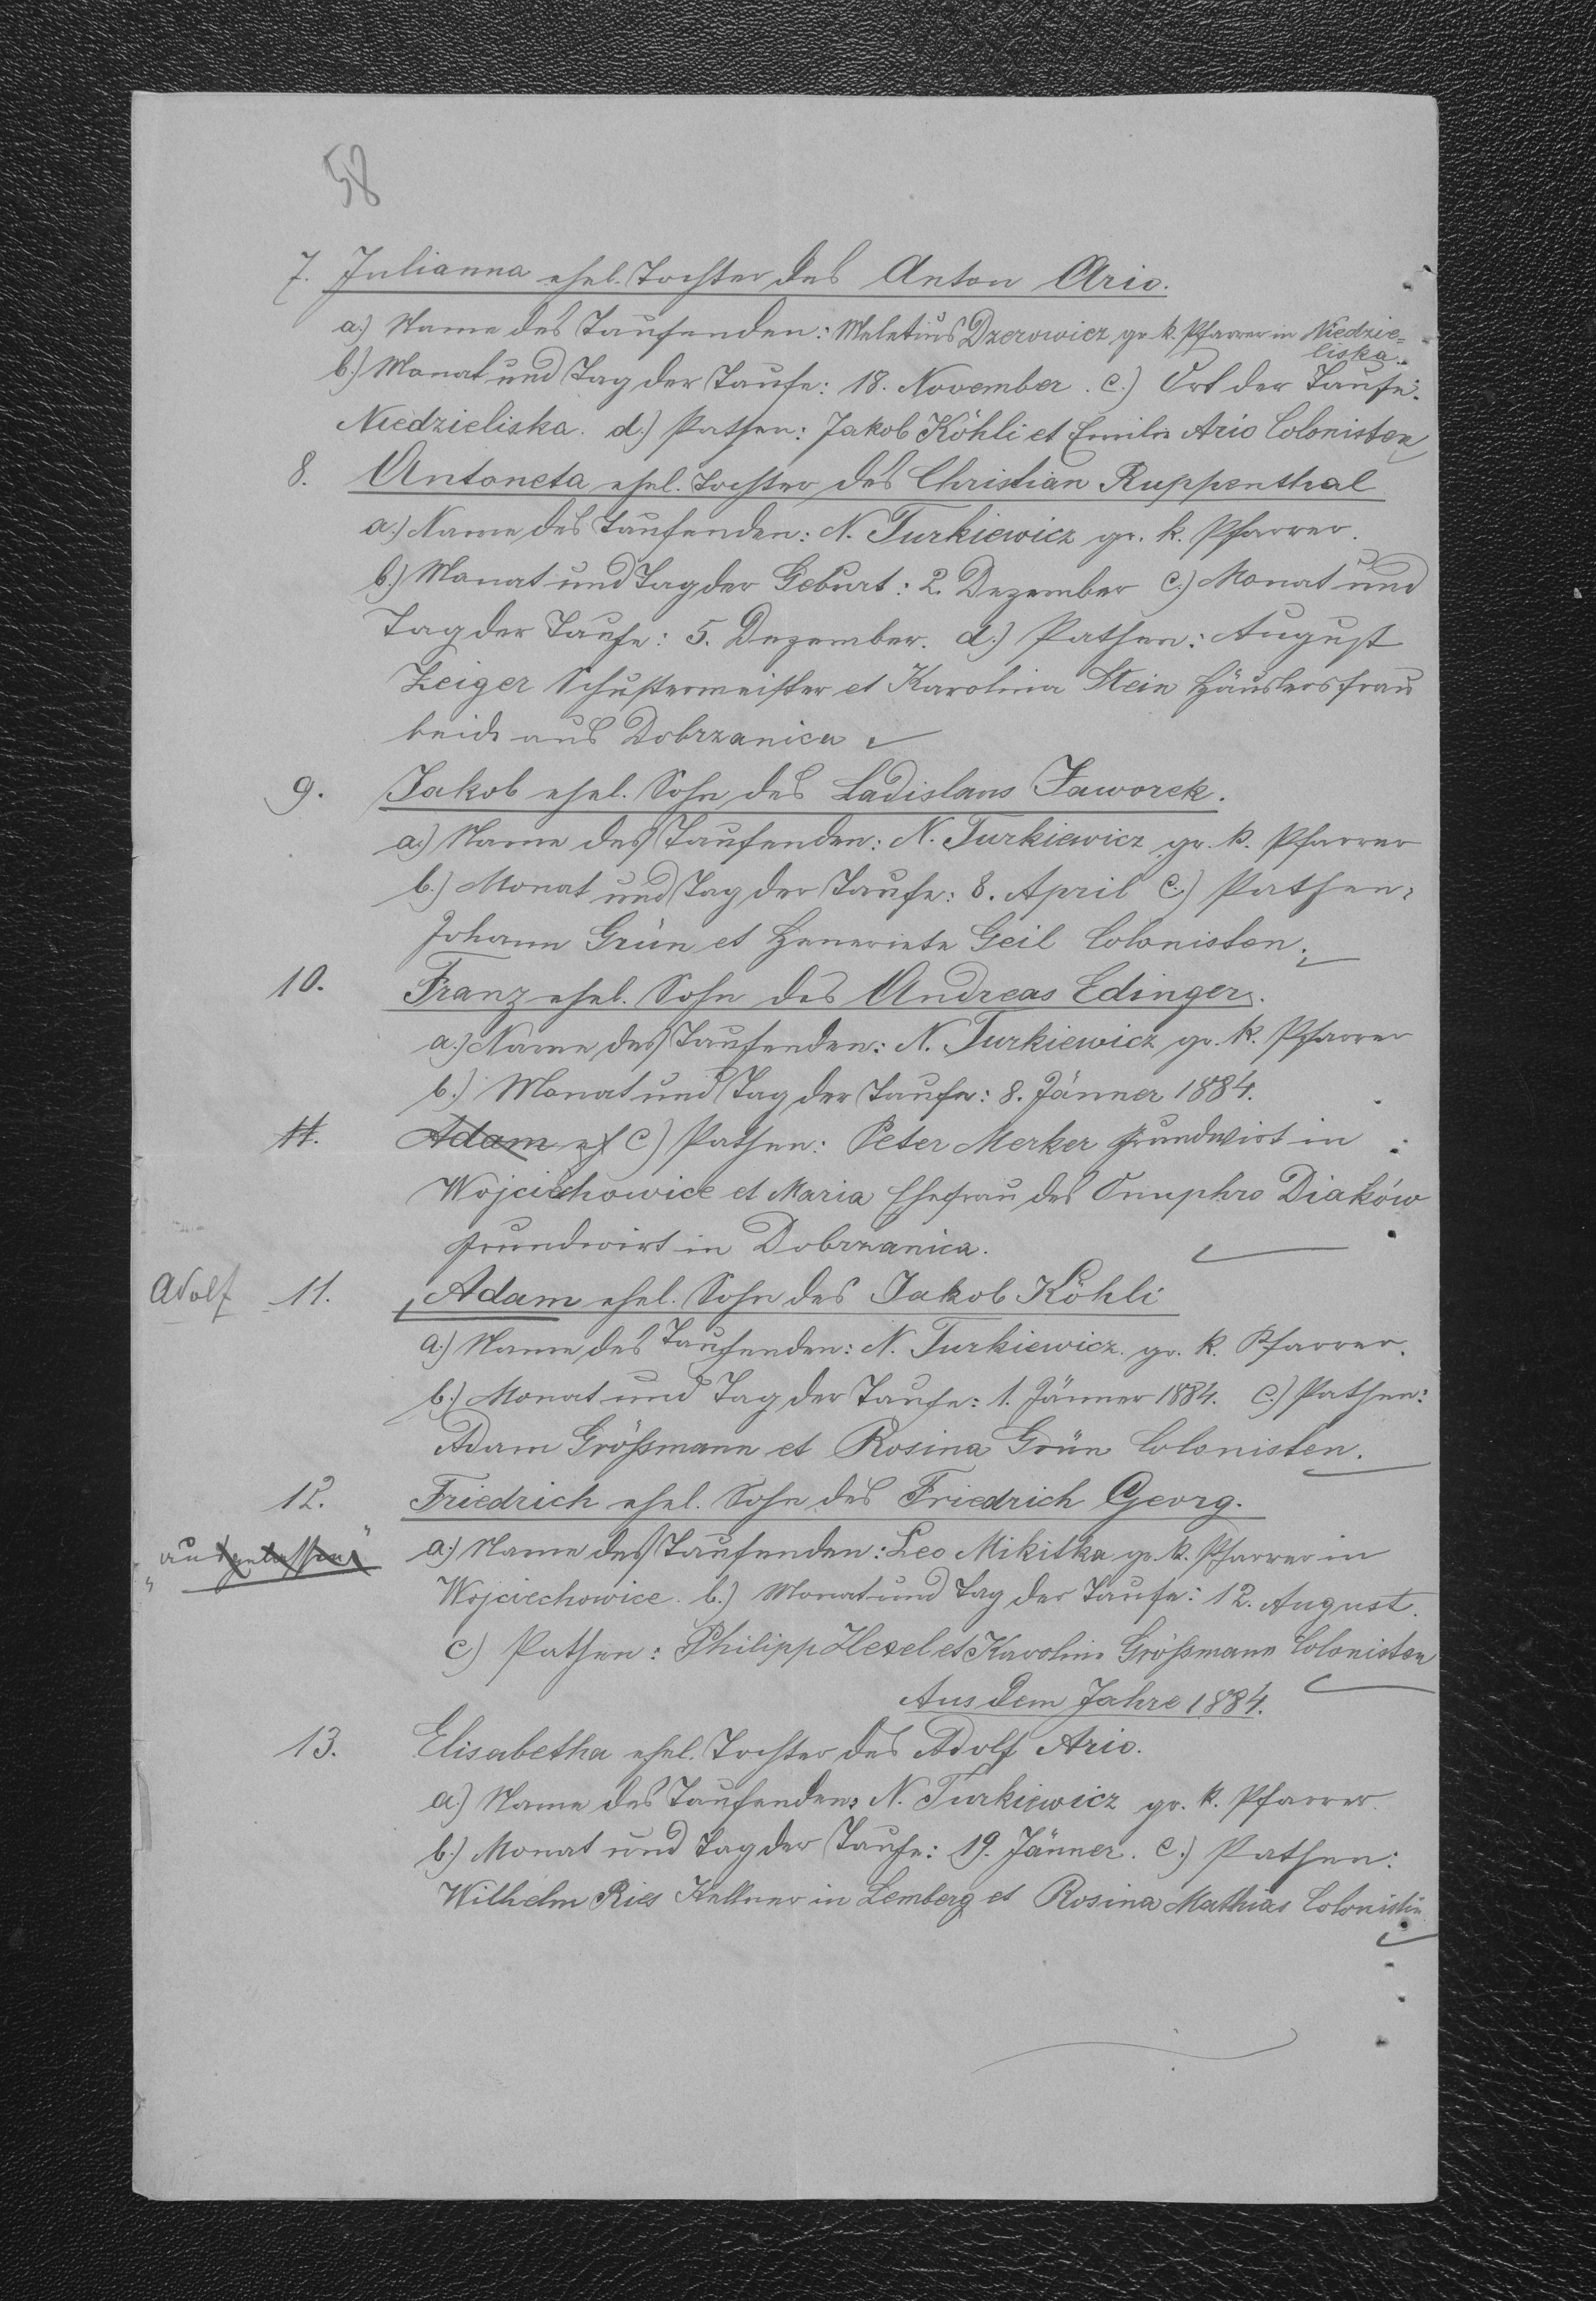 58
7. Julianna ehel. Tochter des Anton Ario.
a.) Name des Taufenden: Meletius Dzerowicz gr. k. Pfarrer in Niedzie=
liska.
b.) Monat und Tag der Taufe: 18. November. c.) Ort der Taufe:
Niedzieliska. d.) Pathen: Jakob Köhli et Emilie Ario Colonisten
8. Antoneta ehel. Tochter des Christian Ruppenthal
a.) Name des Taufenden: N. Turkiewicz gr. k. Pfarrer.
b.) Monat und Tag der Geburt: 2. Dezember c.) Monat und
Tag der Taufe: 5. Dezember. d.) Pathen: August
Zeiger Schustermeister et Karolina Stein Häuslersfrau
beide aus Dobrzanica
9. Jakob ehel. Sohn des Ladislaus Jaworek.
a.) Name des Taufenden: N. Turkiewicz gr. k. Pfarrer
b.) Monat und Tag der Taufe: 8. April c.) Pathen:
Johann Grün et Heneriete Geil Colonisten.
10. Franz ehel. Sohn des Andreas Edinger.
a.) Name des Taufenden: N. Turkiewicz gr. k. Pfarrer
b.) Monat und Tag der Taufe: 8. Jänner 1884.
11. Adam eh c) Pathen: Peter Merker Grundwirt in
Wojciechowice et Maria Ehefrau des Onuphro Diaków
Grundwirt in Dobrzanica.
Adolf 11. Adam ehel. Sohn des Jakob Köhli
a.) Name des Taufenden: N. Turkiewicz. gr. k. Pfarrer.
b.) Monat und Tag der Taufe: 1. Jänner 1884. c.) Pathen:
Adam Größmann et Rosina Grün Colonisten.
12. Friedrich ehel. Sohn des Friedrich Georg.
„ausgelassen" a.) Name des Taufenden: Leo Mikitka gr. k. Pfarrer in
Wojciechowice. b.) Monat und Tag der Taufe: 12. August.
c) Pathen: Philipp Hexel et Karoline Größmann Colonisten
Aus dem Jahre 1884.
13. Elisabetha ehel. Tochter des Adolf Ario.
a.) Name des Taufenden: N. Turkiewicz gr. k. Pfarrer.
b.) Monat und Tag der Taufe: 19. Jänner. c.) Pathen:
Wilhelm Ries Kellner in Lemberg et Rosina Mathias Colonistin